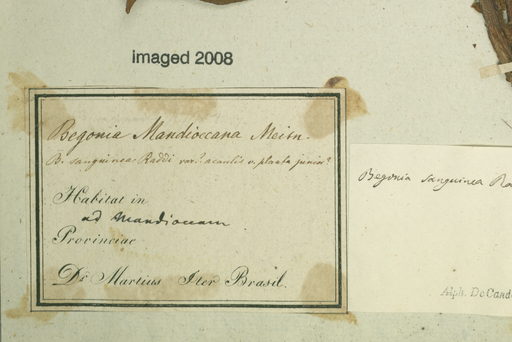 imaged 2008
Begonia Mandioccana Meisn.
B. sanguinea Raddi var.? acaulis v. planta junior?
Habitat in
ad Mandioccam
Provinciae
Dr Martius Iter Brasil.
Begonia sanguinea Ra
Alph. DeCand